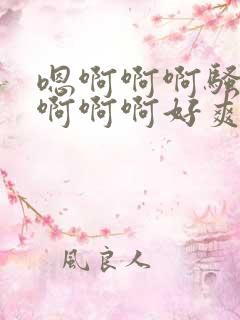 嗯啊啊啊骚
啊啊啊好爽
風良人